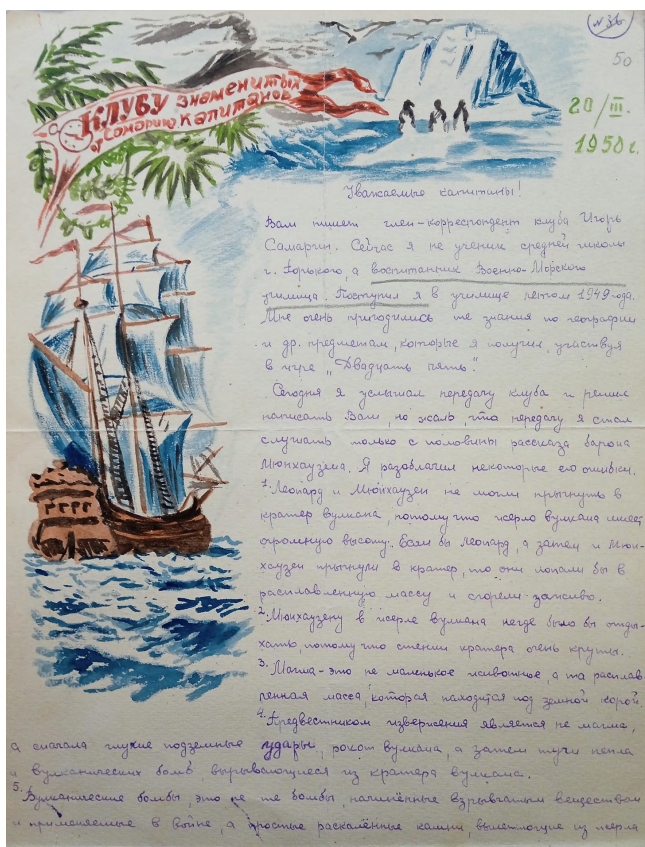 (№36)
50
Клубу знаменитых
капитанов
от Самарина
20/III.
1950 г.
Уважаемые капитаны!
Вам пишет член-корреспондент клуба Игорь
Самаргин. Сейчас я не ученик средней школы
г. Горького, а воспитанник Военно-Морского
училища. Поступил я в училище летом 1949 года.
Мне очень пригодились те знания по географии
и др. предметам, которые я получил, участвуя
в игре „Двадцать пять."
Сегодня я услышал передачу клуба и решил
написать Вам, но жаль, что передачу я стал
слушать только с половины рассказа барона
Мюнхаузена. Я разоблачил некоторые его ошибки.
1. Леопард и Мюнхаузен не могли прыгнуть в
кратер вулкана, потому что жерло вулкана имеет
огромную высоту. Если бы леопард, а затем и Мюн-
хаузен прыгнули в кратер, то они попали бы в
расплавленную массу и сгорели заживо.
2. Мюнхаузену в жерле вулкана негде было бы отды-
хать, потому что стенки кратера очень круты.
3. Магма - это не маленькое животное, а та расплав-
ленная масса, которая находится под земной корой.
4. Предвестником извержения является не магма,
а сначала глухие подземные удары, рокот вулкана, а затем тучи пепла
и вулканических бомб, вырывающиеся из кратера вулкана.
5. Вулканические бомбы, это не те бомбы, начинённые взрывчатым веществом
и применяемые в войне, а простые раскалённые камни, вылетающие из жерла